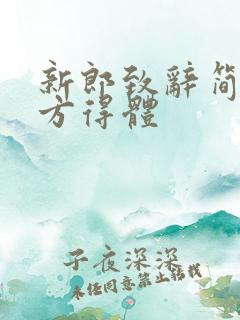 新郎致辞简
方得體
子夜深深
未经同意禁止转载